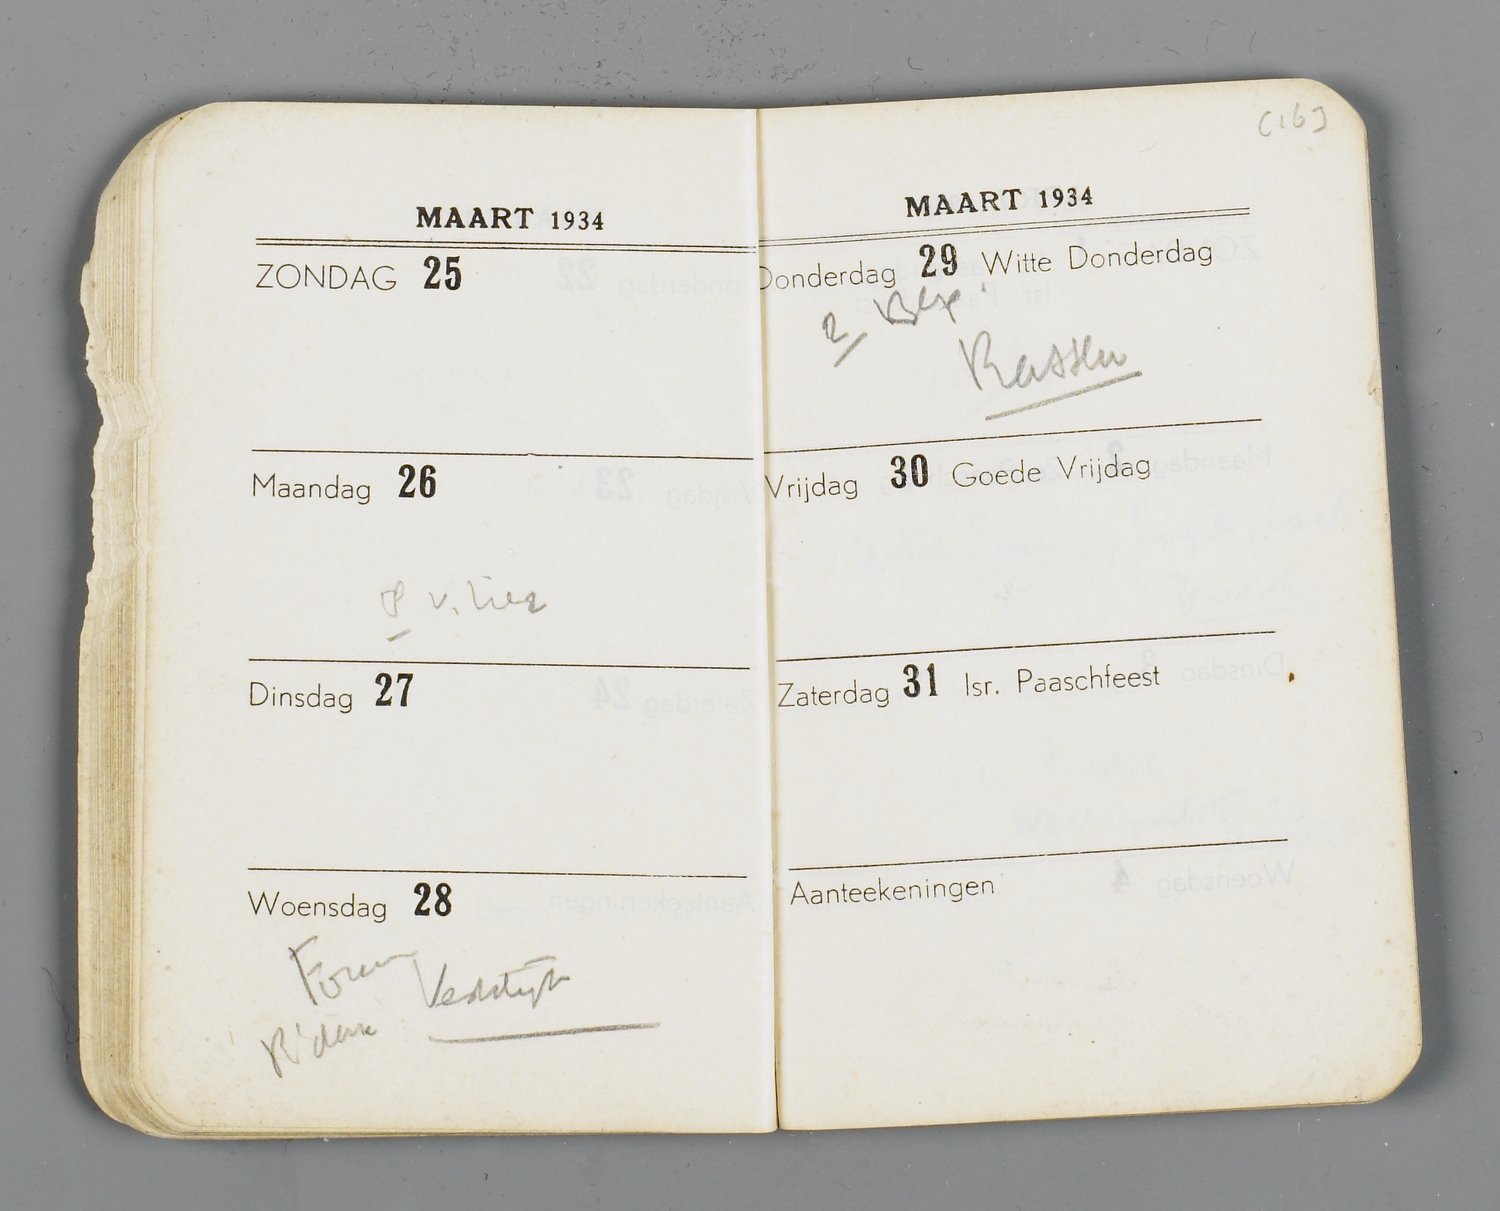 MAART 1934
ZONDAG 25
Maandag 26
8 v. Lier
Dinsdag 27
Woensdag 28
Forum
Verstijn
R'dam
(16)
MAART 1934
Donderdag 29 Witte Donderdag
2
Vrijdag 30 Goede Vrijdag
Zaterdag 31 Isr. Paaschfeest
Aanteekeningen